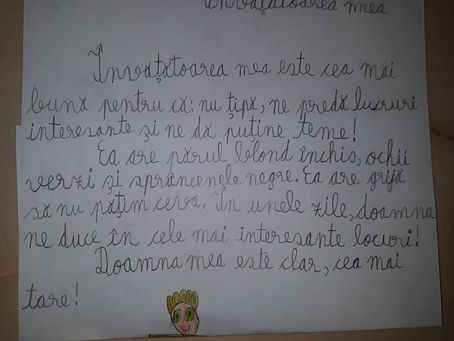 Învățătoarea mea
Învățătoarea mea este cea mai
bună pentru că: nu țipă, ne predă lucruri
interesante și ne dă puține teme!
Ea are părul blond închis, ochii
verzi și sprâncenele negre. Ea are grijă
să nu pățim ceva. În unele zile, doamna
ne duce în cele mai interesante locuri!
Doamna mea este clar, cea mai
tare!